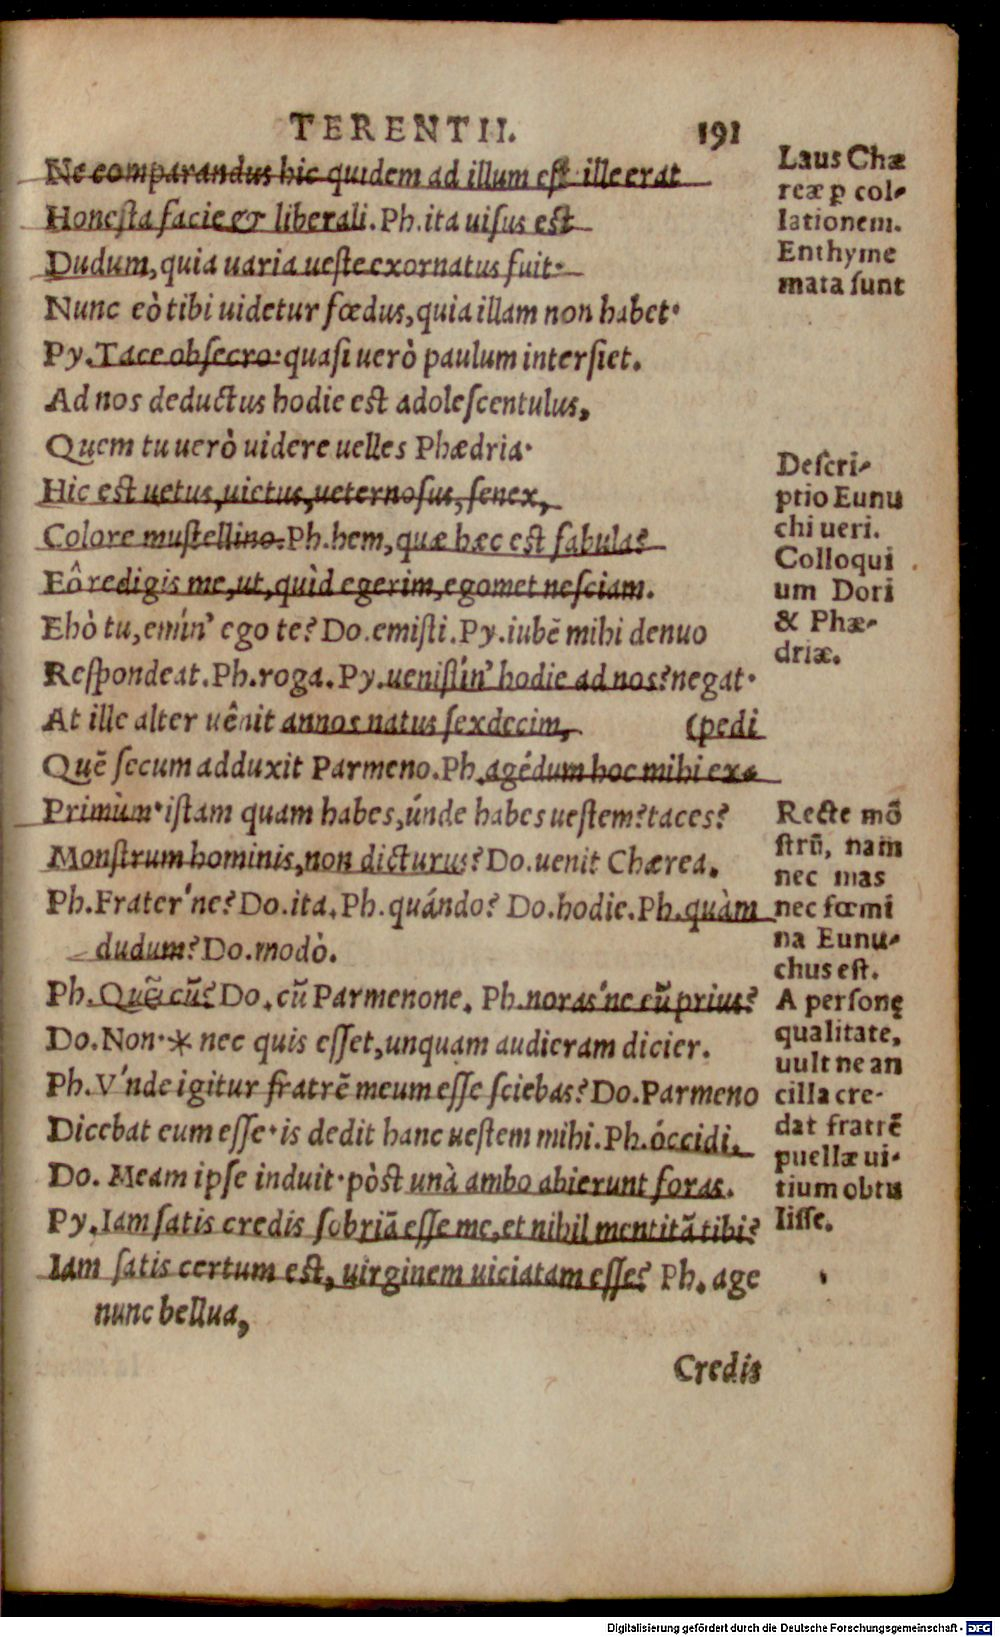 TERENTII. 191
Ne comparandus hic quidem ad illum est· ille erat
Honesta facie & liberali. Ph. ita uisus est
Dudum, quia uaria ueste exornatus fuit·
Nunc eò tibi uidetur fœdus, quia illam non habet·
Py. Tace obsecro· quasi uerò paulum intersiet.
Ad nos deductus hodie est adolescentulus,
Quem tu uerò uidere uelles Phædria·
Hic est uetus, uictus, ueternosus, senex,
Colore mustellino. Ph. hem, quæ hæc est fabula?
Eô redigis me, ut, quìd egerim, egomet nesciam.
Ehò tu, emín' ego te? Do. emisti. Py. iubē mihi denuo
Respondeat. Ph. roga. Py. uenistín' hodie ad nos? negat·
At ille alter uênit annos natus sexdecim, (pedi
Quē secum adduxit Parmeno. Ph. agédum hoc mihi ex-
Primùm· istam quam habes, únde habes uestem? taces?
Monstrum hominis, non dicturus? Do. uenit Chærea.
Ph. Frater'ne? Do. ita. Ph. quándo? Do. hodie. Ph. quàm
dudum? Do. modò.
Ph. Quē cū? Do. cū Parmenone. Ph. noras'ne eū prius?
Do. Non· * nec quis esset, unquam audieram dicier.
Ph. V'nde igitur fratrē meum esse sciebas? Do. Parmeno
Dicebat eum esse· is dedit hanc uestem mihi. Ph. óccidi.
Do. Meam ipse induit· pòst unà ambo abierunt foras.
Py. Iam satis credis sobriā esse me, et nihil mentitā tibi?
Iam satis certum est, uirginem uiciatam esse? Ph. age
nunc bellua,
Credis
Laus Chæ
reæ ꝑ col-
lationem.
Enthyme
mata sunt
Descri-
ptio Eunu
chi ueri.
Colloqui
um Dori
& Phæ-
driæ.
Recte mō
strū, nam
nec mas
nec fœmi
na Eunu-
chus est.
A personę
qualitate,
uult ne an
cilla cre-
dat fratrē
puellæ ui-
tium obtu
lisse.
Digitalisierung gefördert durch die Deutsche Forschungsgemeinschaft - DFG